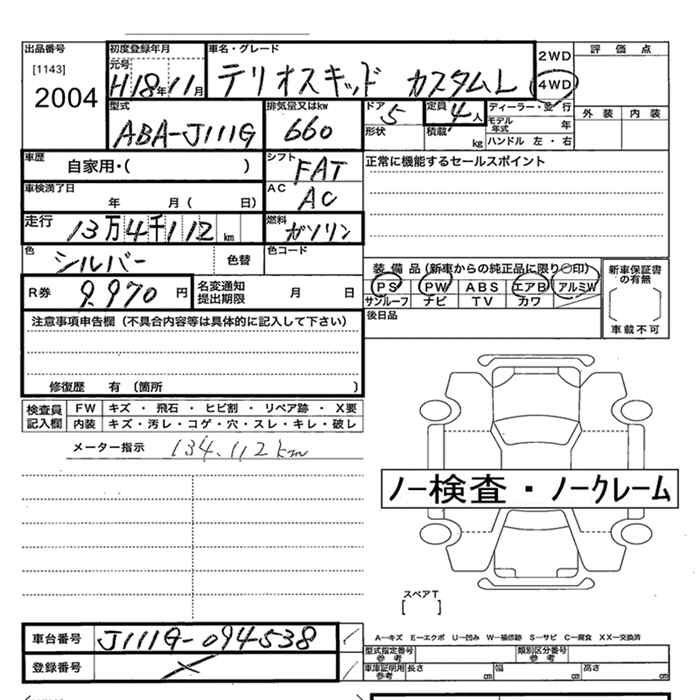 出品番号 初度登録年月 車名・グレード 評価点
[1143] 元号
2004 H18年11月 テリオスキッド カスタムL 2WD 4WD
型式 排気量又はkw ドア 定員 ディーラー・並行 外装 内装
ABA-J111G 660 5 4人 モデル年式 年
形状 積載 kg ハンドル 左・右
車歴 自家用・( ) シフト FAT 正常に機能するセールスポイント
車検満了日 年 月( 日) AC AC
走行 13万4千112km 燃料 ガソリン
色 シルバー 色替 色コード
装備品(新車からの純正品に限り○印) 新車保証書の有無
R券 9.970円 名変通知提出期限 月 日 PS PW ABS エアB アルミW
サンルーフ ナビ TV カワ
注意事項申告欄(不具合内容等は具体的に記入して下さい) 後日品 車載不可
修復歴 有 (箇所 )
検査員記入欄 FW キズ・飛石・ヒビ割・リペア跡・X要
内装 キズ・汚レ・コゲ・穴・スレ・キレ・破レ
メーター指示 134.112km
ノー検査・ノークレーム
スペアT
[ ]
車台番号 J111G-094538
A−キズ E−エクボ U−凹み W−補修跡 S−サビ C−腐食 XX−交換済
登録番号 ×
型式指定番号 参考 類別区分番号 参考
車庫証明用参考 長さ cm 幅 cm 高さ cm